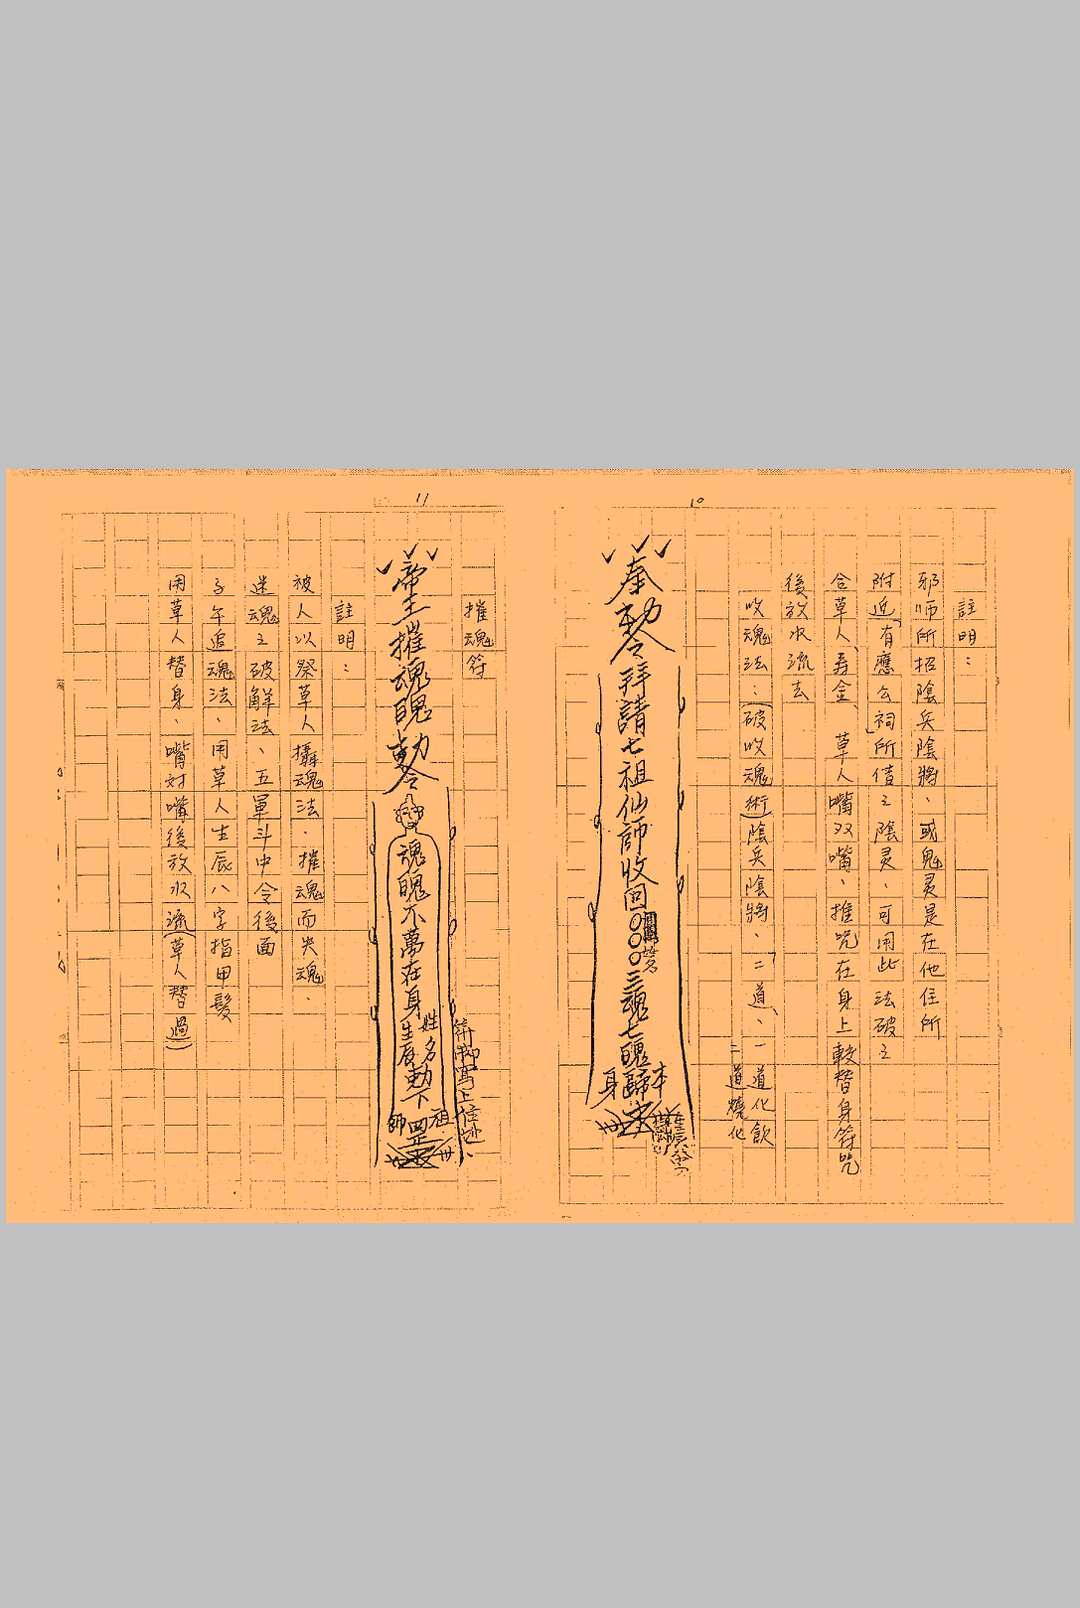 10
註明：
邪師所招陰兵陰將、或鬼灵是在他住所
附近「有應公祠」所借之陰灵、可用此法破之
合草人、寿金、草人嘴双嘴、推咒在身上較替身符咒
後放水流去
收魂法：(破收魂術)陰兵陰將、「二道」、一道化飲
二道燒化
奉勅令拜請七祖仙師收回○○○三魂七魄歸
本身
11
摧魂符
帝王摧魂魄勅令
魂魄不萬在身
姓名
生辰
勅下罡
祖師
註明：
被人以祭草人攝魂法、摧魂而失魂、
迷魂之破解法、五軍斗中令後面
子午追魂法、用草人生辰八字指甲髮
用草人替身、嘴对嘴後放水流(草人替過)